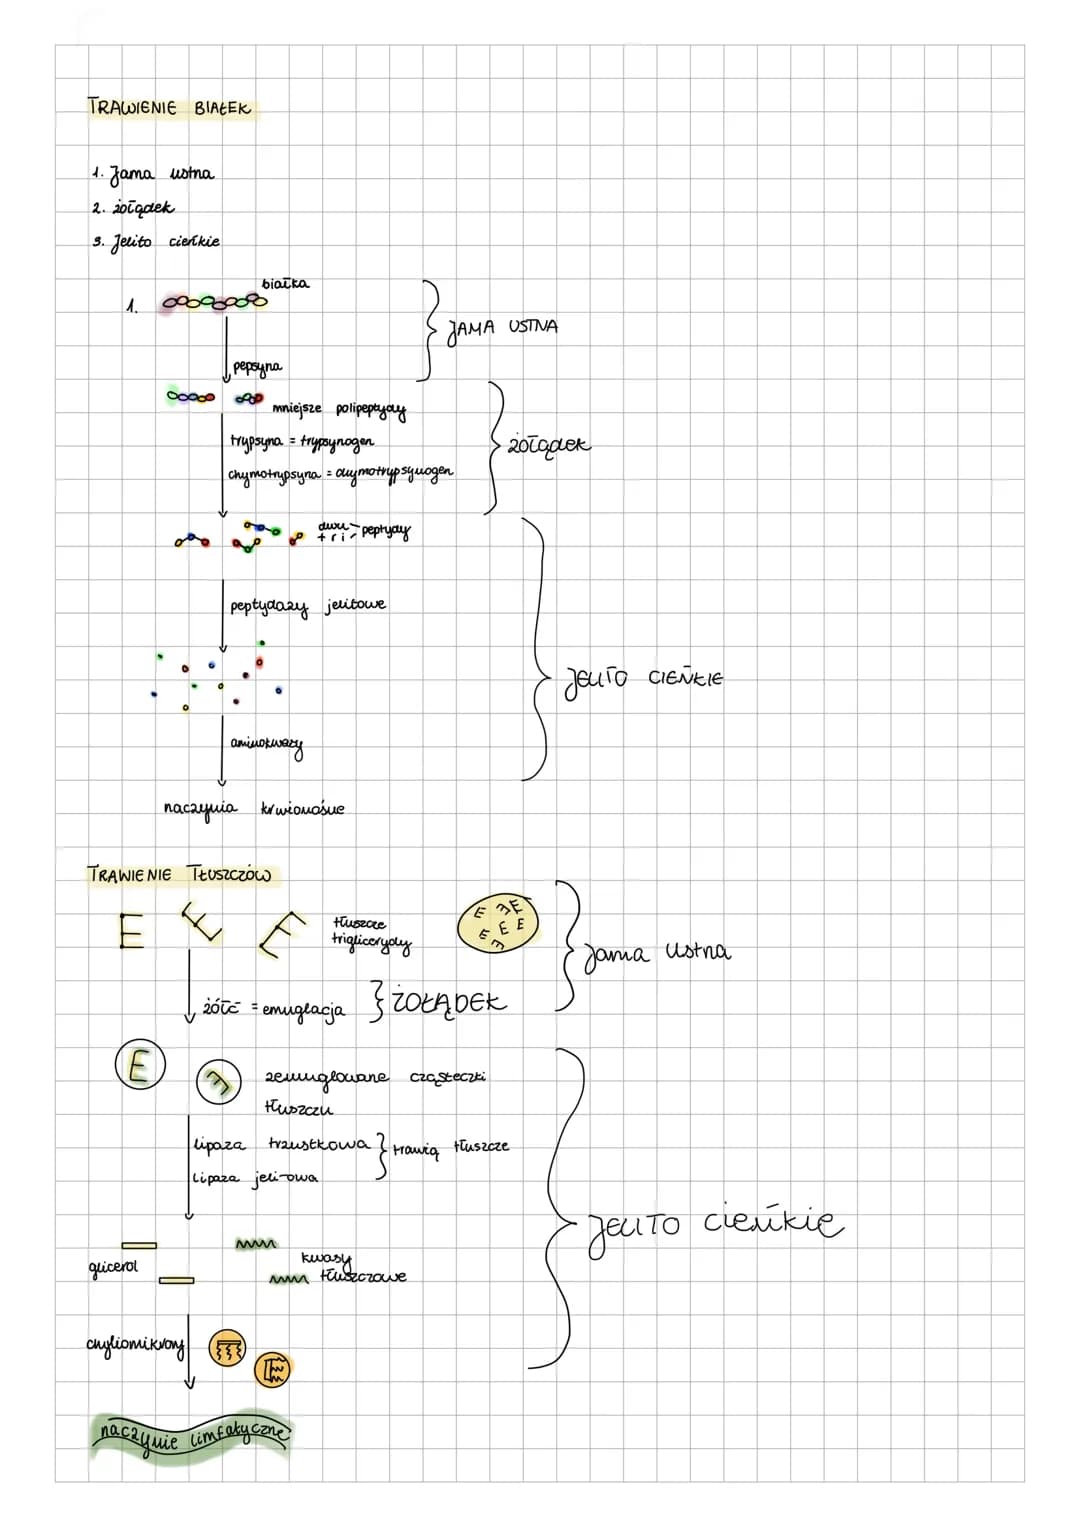 TRAWIENIE BIAŁEK
1. Jama ustna
2. żołądek
3. Jelito cieńkie
białka
1.
JAMA USTNA
pepsyna
mniejsze polipeptydy
trypsyna = trypsynogen
żołądek
chymotrypsyna = chymotrypsynogen
dwu- peptydy
tri-
peptydazy jelitowe
JELITO CIEŃKIE
aminokwasy
naczynia krwionośne
TRAWIENIE TŁUSZCZÓW
tłuszcze
triglicerydy
Jama ustna
żółć = emuglacja } ŻOŁĄDEK
zemuglowane cząsteczki
tłuszczu
lipaza trzustkowa } trawią tłuszcze
lipaza jelitowa
JELITO cieńkie
glicerol
kwasy
tłuszczowe
chyliomikrony
naczynie limfatyczne